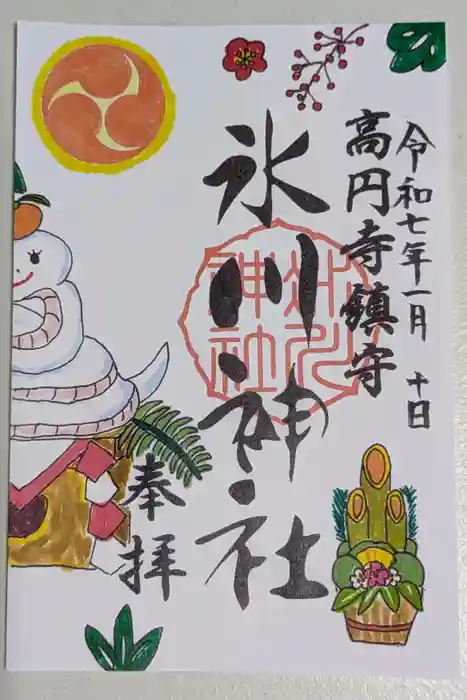 令和七年一月 十日
高円寺鎮守
氷川神社
氷川神社
奉拝